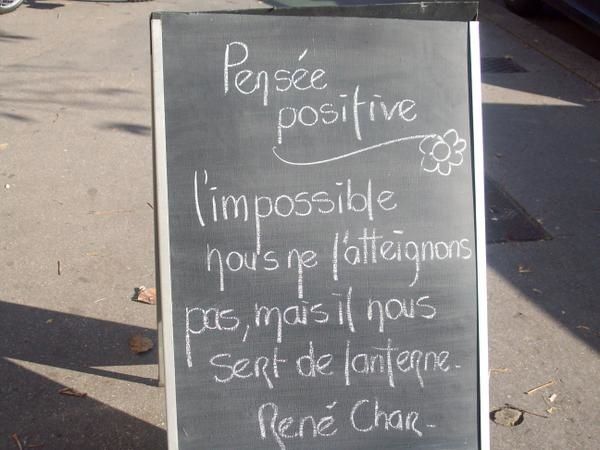 Pensée
positive
l'impossible
nous ne l'atteignons
pas, mais il nous
sert de lanterne.
René Char.